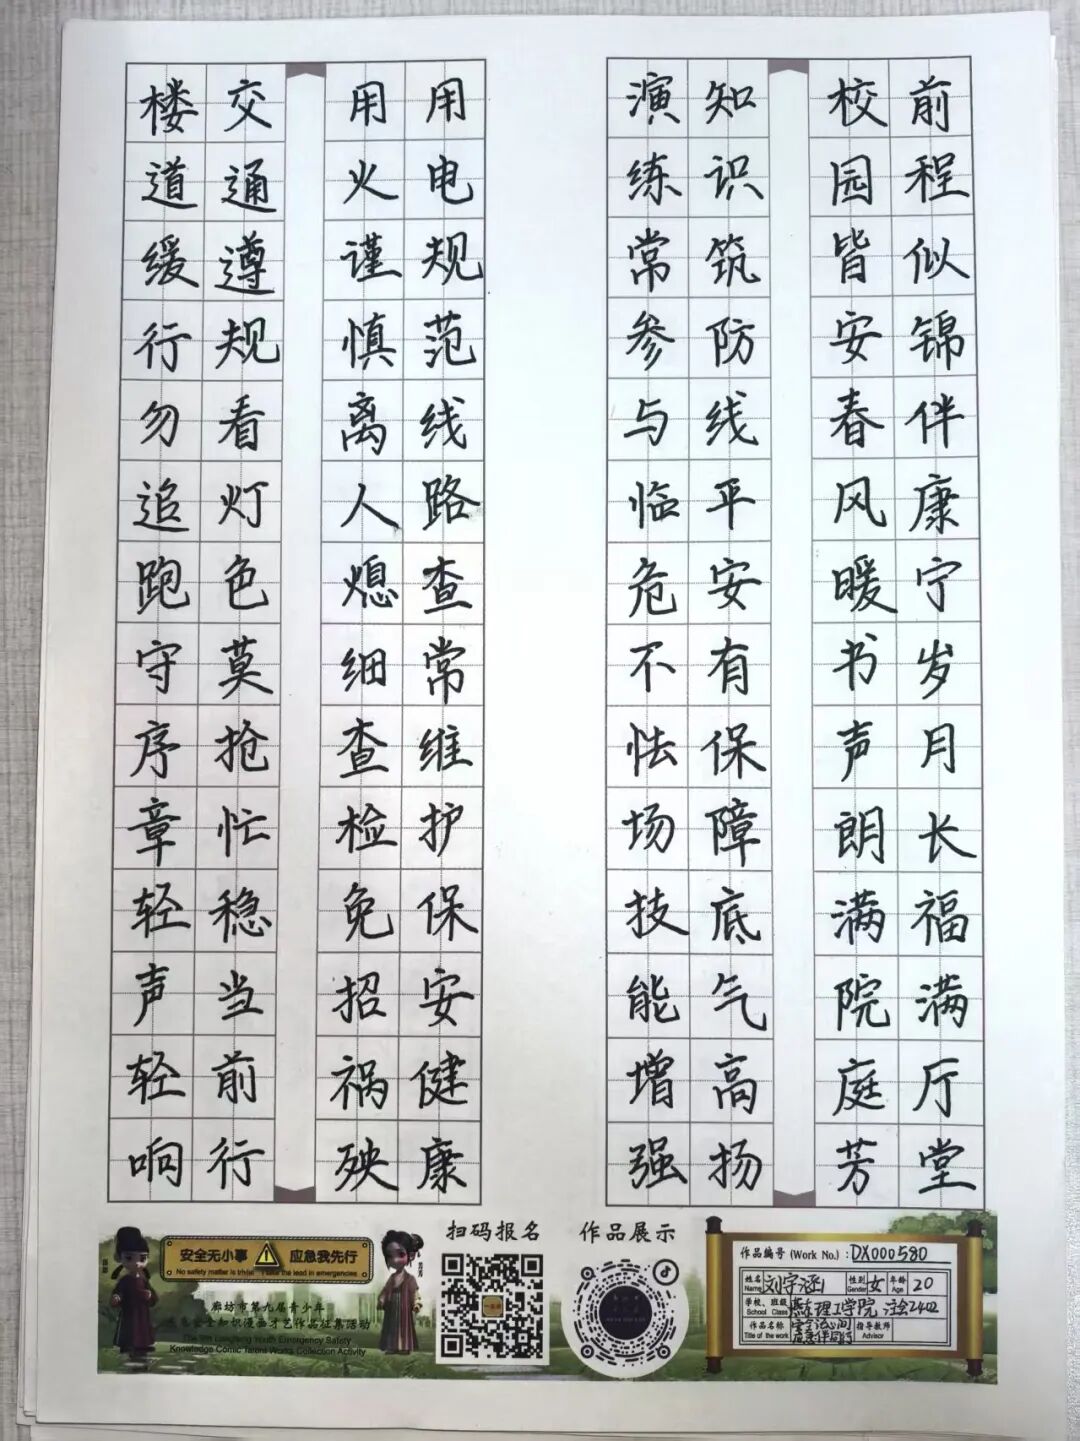 楼道缓行勿追跑守序章轻声轻响
交通遵规看灯色莫抢忙稳当前行
用火谨慎离人熄细查检免招祸殃
用电规范线路查常维护保安健康
演练常参与临危不怯场技能增强
知识筑防线平安有保障底气高扬
校园皆安春风暖书声朗满院庭芳
前程似锦伴康宁岁月长福满厅堂
安全无小事 应急我先行
No safety matter is trivial Take the lead in emergencies
廊坊市第九届青少年
应急安全知识漫画才艺作品征集活动
The 9th Langfang Youth Emergency Safety
Knowledge Comic Talent Works Collection Activity
扫码报名
作品展示
作品编号 (Work No.) : DX000580
姓名 Name 刘字涵 性别 Gender 女 年龄 Age 20
学校、班级 School Class 燕京理工学院 注会2402
作品名称 Title of the work 指导教师 Advisor